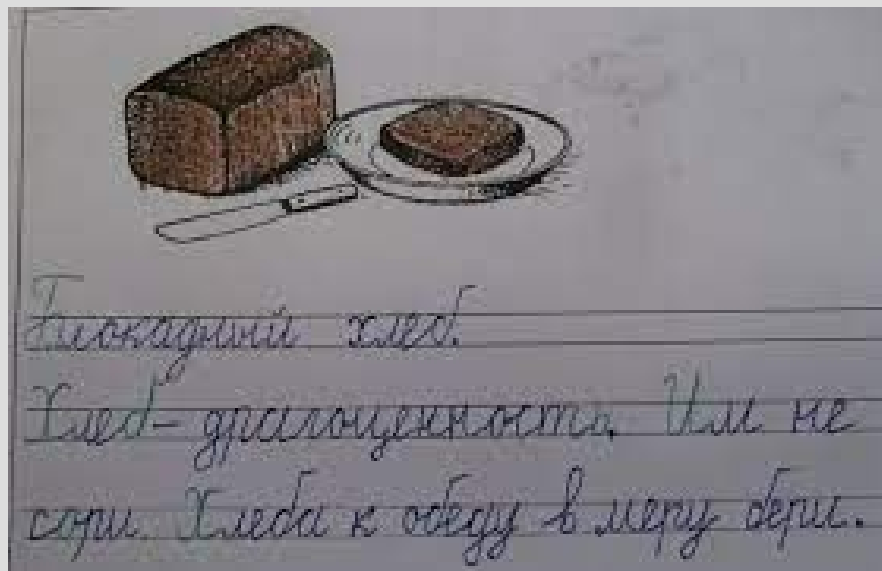 Блокадный хлеб.
Хлеб - драгоценность. Им не
сори. Хлеба к обеду в меру бери.